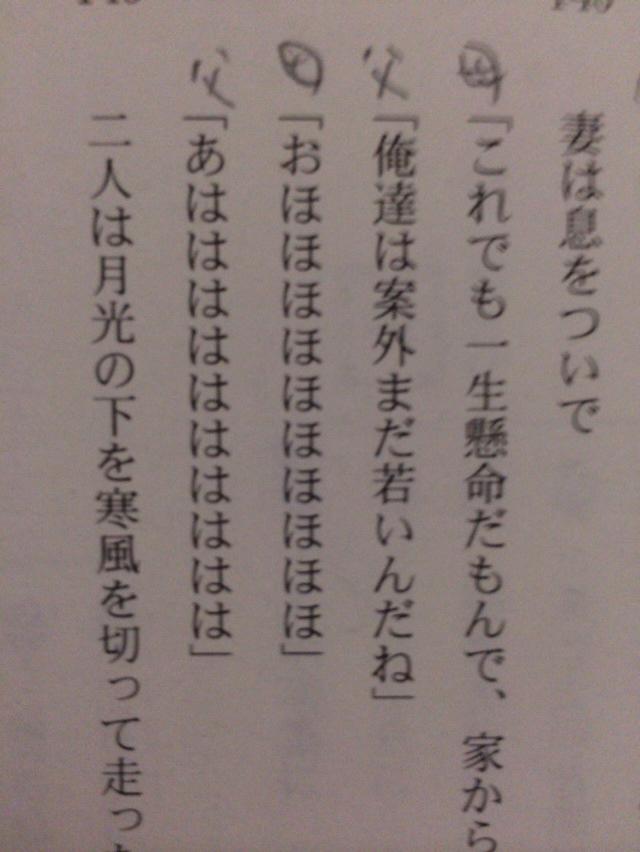 妻は息をついで
母「これでも一生懸命だもんで、家から
父「俺達は案外まだ若いんだね」
「おほほほほほほほほほほ」
父「あはははははははははは」
二人は月光の下を寒風を切って走っ